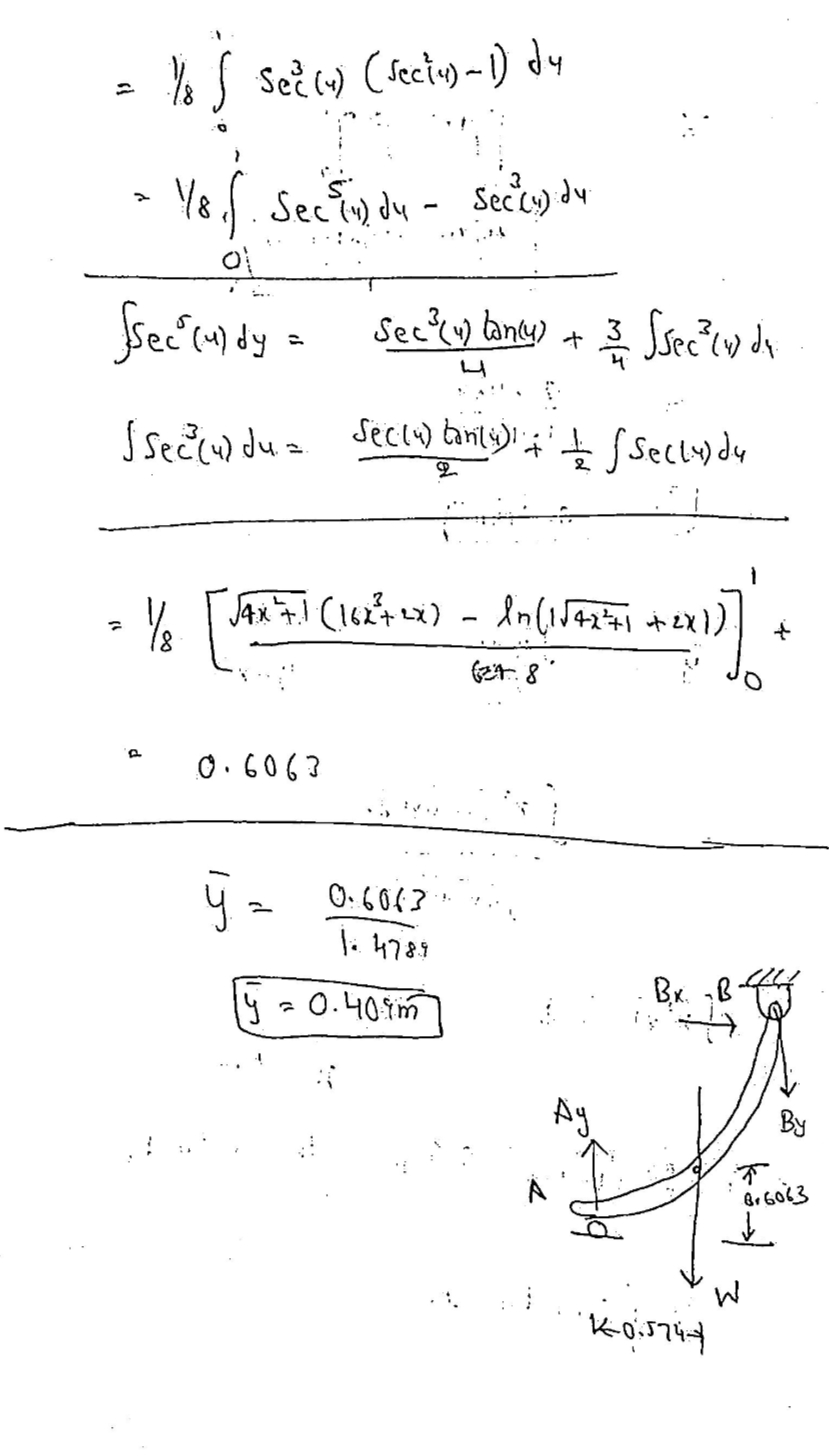 = 1/8 ∫₀¹ Sec³(u) (Sec²(u) - 1) du
= 1/8 ∫₀¹ Sec⁵(u) du - Sec³(u) du
∫Sec⁵(u) dy = Sec³(u) tan(u)/4 + 3/4 ∫Sec³(u) du
∫Sec³(u) du = Sec(u) tan(u)/2 + 1/2 ∫Sec(u) du
= 1/8 [√4x²+1 (16x³+2x) - ln(|√4x²+1 + 2x|)/8]₀¹ +
= 0.6063
ȳ = 0.6063/1.4789
ȳ = 0.409m
Bx B
By
Ay
A
0.6063
W
0.574